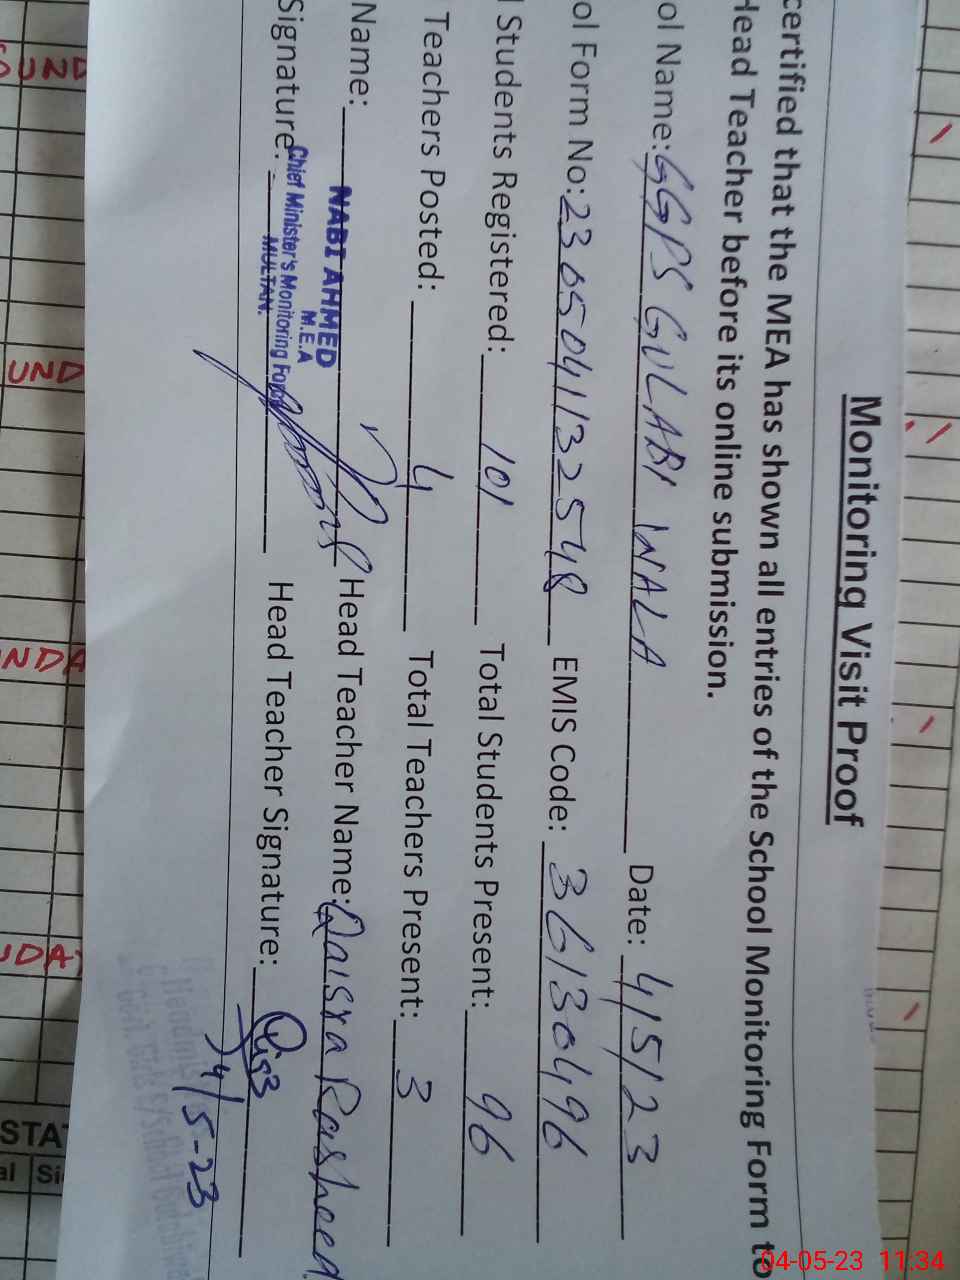 Monitoring Visit Proof
certified that the MEA has shown all entries of the School Monitoring Form to
Head Teacher before its online submission.
ol Name: GGPS GULABI WALA Date: 4/5/23
ol Form No: 2305041132548 EMIS Code: 36130496
l Students Registered: 101 Total Students Present: 96
Teachers Posted: 4 Total Teachers Present: 3
Name: NABI AHMED Head Teacher Name: Qaisra Rasheed
M.E.A
Chief Minister's Monitoring Force
MULTAN.
Signature: Head Teacher Signature:
4/5-23
OUND
UND
NDA
UDAY
STAT
al Si
04-05-23 11:34